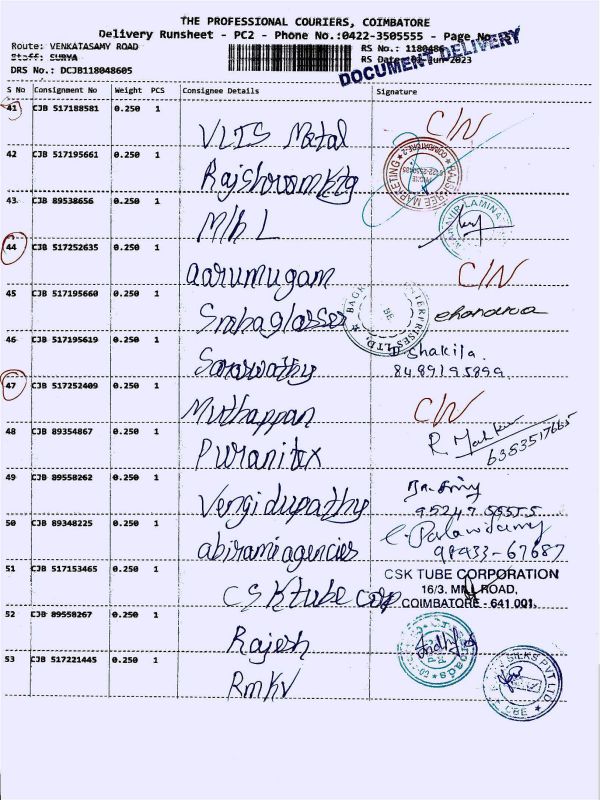 THE PROFESSIONAL COURIERS, COIMBATORE
Delivery Runsheet - PC2 - Phone No.:0422-3505555 - Page No.
Route: VENKATASAMY ROAD RS No.: 1180486
Staff: SURYA RS Date: Jun-2023
DRS No.: DCJB118048605
DOCUMENT DELIVERY
S No Consignment No Weight PCS Consignee Details Signature
41 CJB 517188581 0.250 1 VLTS Metal C/N
42 CJB 517195661 0.250 1
43 CJB 89538656 0.250 1 M/h L
44 CJB 517252635 0.250 1 aarumugam C/N
45 CJB 517195660 0.250 1
46 CJB 517195619 0.250 1 Saraswathy Shakila.
8489195899
47 CJB 517252409 0.250 1 Muthappan C/N
48 CJB 89354867 0.250 1 Puranitex R.
6353517665
49 CJB 89558262 0.250 1 Vengidupathy
95247 55555
50 CJB 89348225 0.250 1 abirami agencies C. Palawisamy
98933-67687
51 CJB 517153465 0.250 1 CSK tube corp CSK TUBE CORPORATION
16/3. MILL ROAD,
COIMBATORE - 641 001.
52 CJB 89558267 0.250 1 Rajesh
53 CJB 517221445 0.250 1 RmKV SILKS PVT LTD
CBE